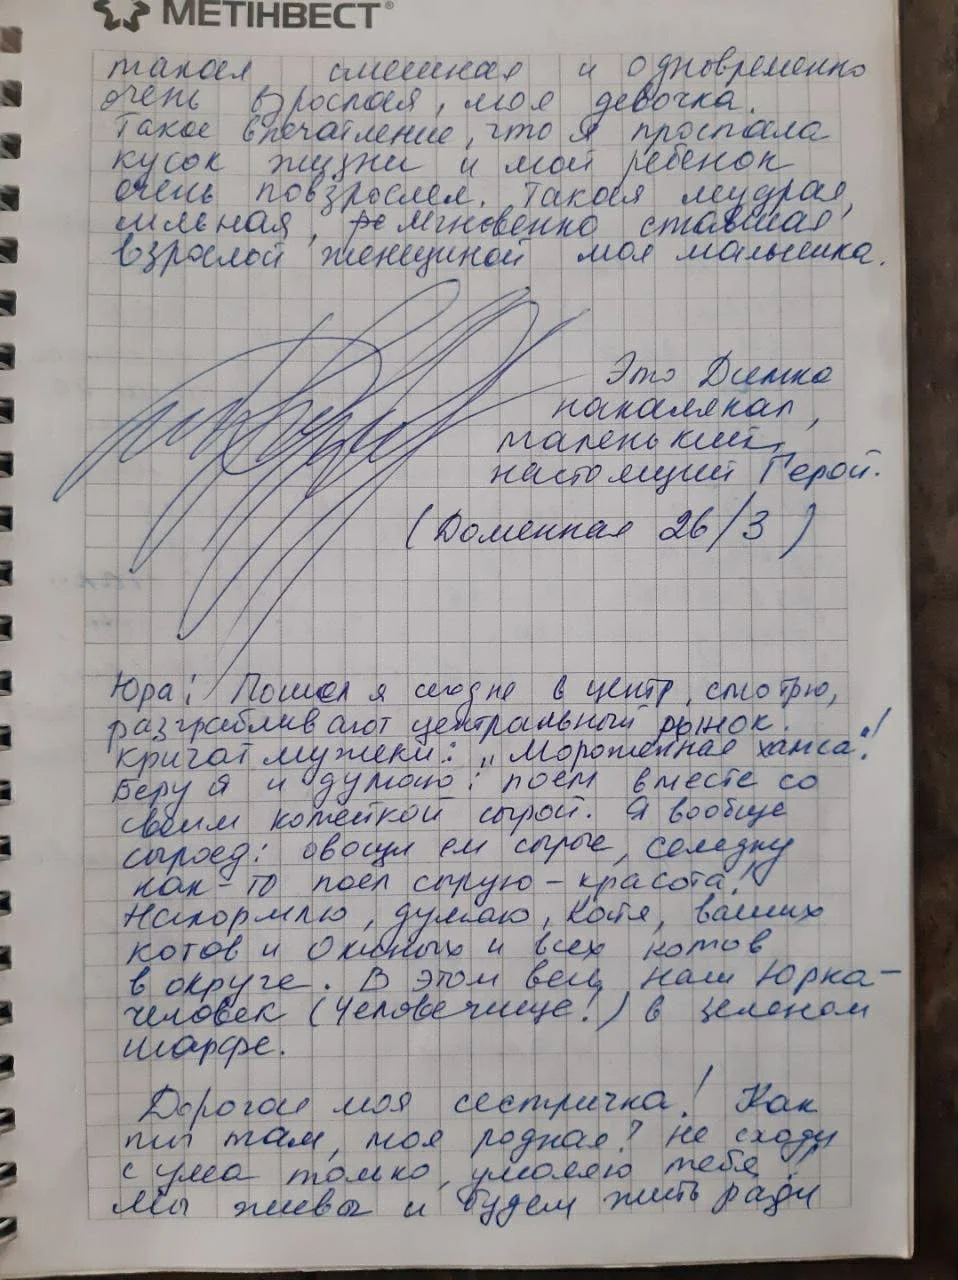 МЕТІНВЕСТ®
такая смешная и одновременно
очень взрослая, моя девочка.
Такое впечатление, что я проспала
кусок жизни и мой ребенок
очень повзрослел. Такая мудрая,
сильная, мгновенно ставшая
взрослой женщиной моя малышка.
Это Димка
накалякал,
маленький,
настоящий Герой.
(Доменная 26/3)
Юра: Пошел я сегодне в центр, смотрю,
разграбливают центральный рынок.
Кричат мужики: „Мороженная хамса!
Беру я и думаю: поем вместе со
своим котейкой сырой. Я вообще
сыроед: овощи ем сырые, селедку
как-то поел сырую-красота!
Накормлю, думаю, Котя, ваших
котов и Оксиных и всех котов
в округе. В этом весь наш Юрка-
человек (Человечище!) в зеленом
шарфе.
Дорогая моя сестричка! Как
ты там, моя родная? Не сходи
с ума только, умоляю тебя!
Мы живы и будем жить ради